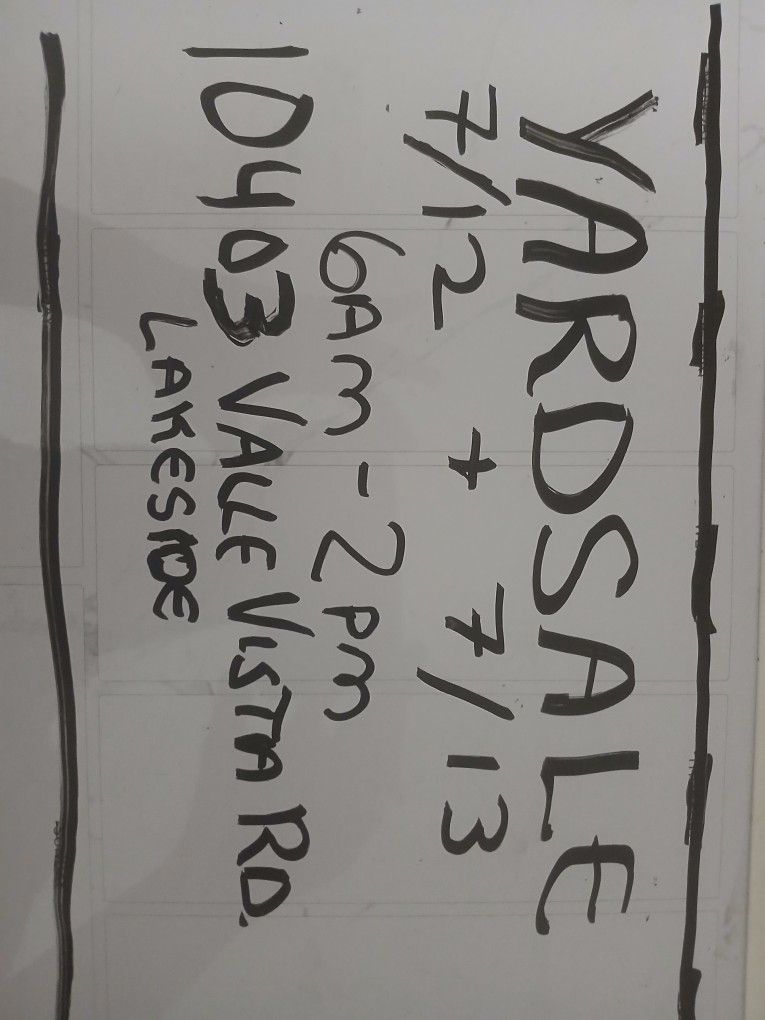 YARDSALE
7/12 + 7/13
6AM - 2PM
10403 VALLE VISTA RD.
LAKESIDE